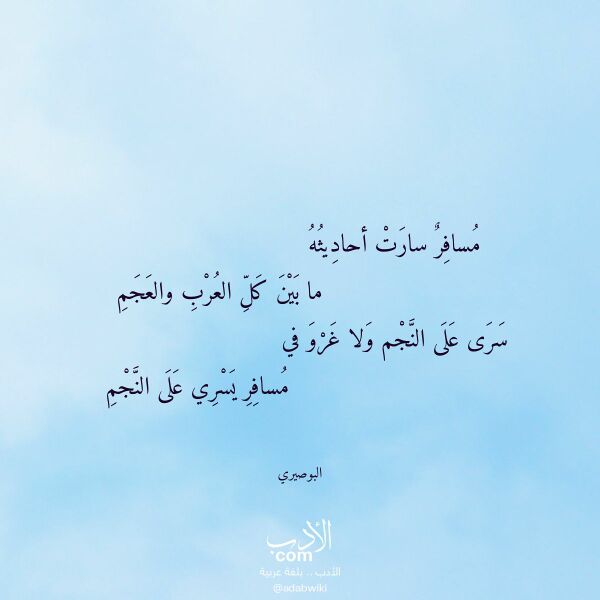 مُسافِرٌ سارَتْ أحادِيثُهُ
ما بَيْنَ كَلِّ العُرْبِ والعَجَمِ
سَرَى عَلَى النَّجْم وَلا غَرْوَ في
مُسافِرِ يَسْرِي عَلَى النَّجْمِ
البوصيري
الأدب
com
الأدب .. بلغة عربية
@adabwiki